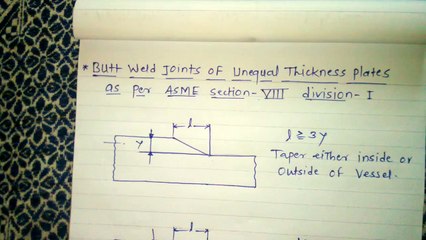 * Butt Weld Joints of Unequal Thickness Plates
as per ASME section-VIII division-I
l
y
l ≥ 3y
Taper either inside or
outside of vessel.
l